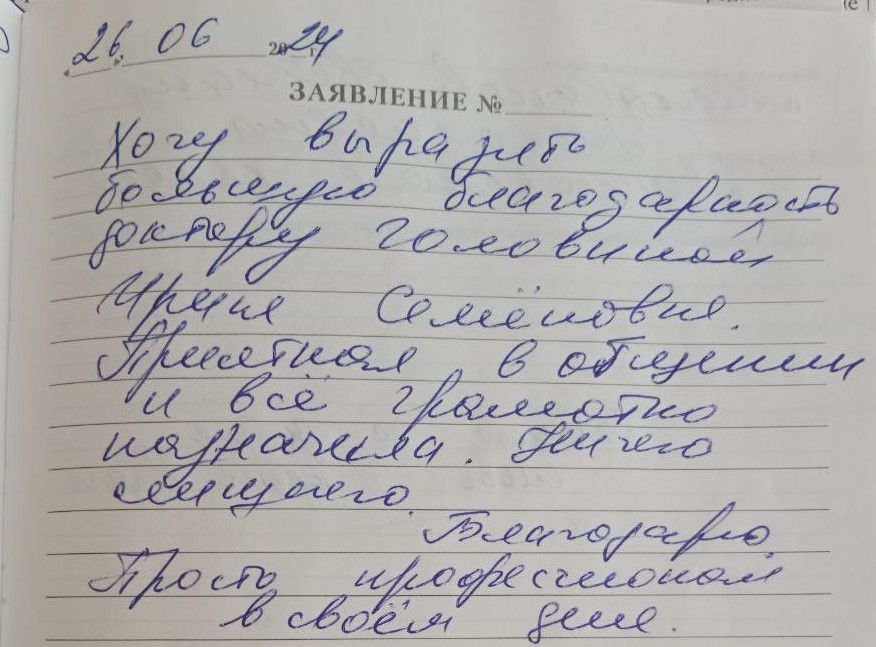 26. 06 2024 г.
ЗАЯВЛЕНИЕ №
Хочу выразить
большую благодарность
доктору Головиной
Ирине Семёновне.
Приятная в общении
и всё грамотно
назначила. Ничего
лишнего.
Благодарю.
Просто професионал
в своём деле.